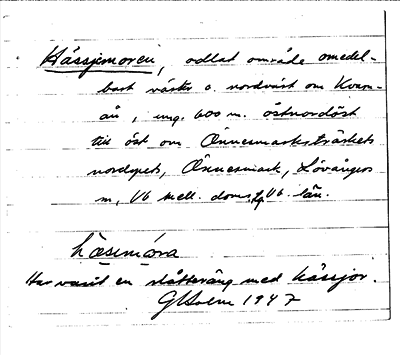 Hässjemoren, odlat område omedel-
bart väster o. nordväst om Kvarn-
ån, ung. 600 m. östnordöst
till öst om Önnesmarksträskets
nordspets, Önnesmark, Lövångers
sn, Vb mell. doms, Vb. län.
hæsɩmóra
Har varit en slåtteräng med hässjor.
GHolm 1947